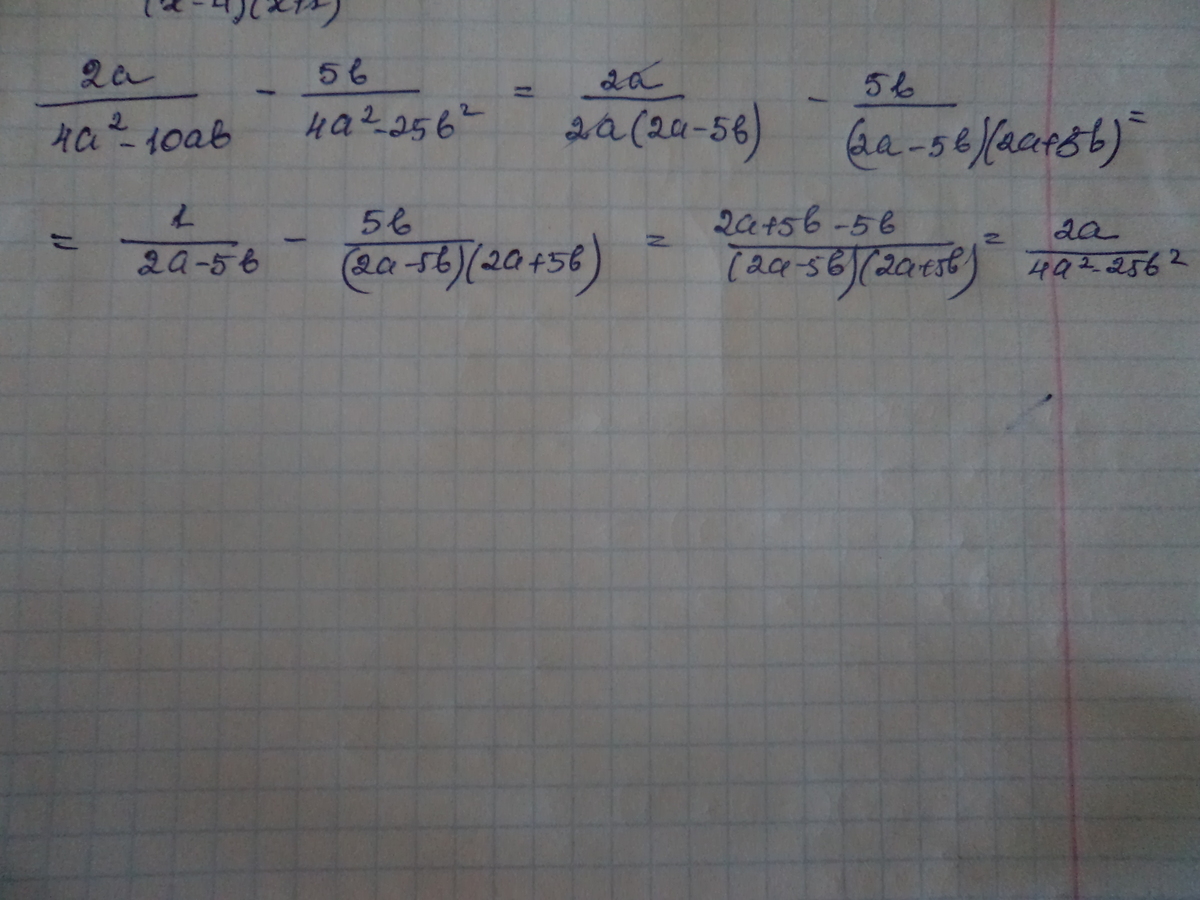 (x-4)(x+1)
2a/(4a²-10ab) - 5b/(4a²-25b²) = 2a/(2a(2a-5b)) - 5b/((2a-5b)(2a+5b)) =
= 1/(2a-5b) - 5b/((2a-5b)(2a+5b)) = (2a+5b-5b)/((2a-5b)(2a+5b)) = 2a/(4a²-25b²)